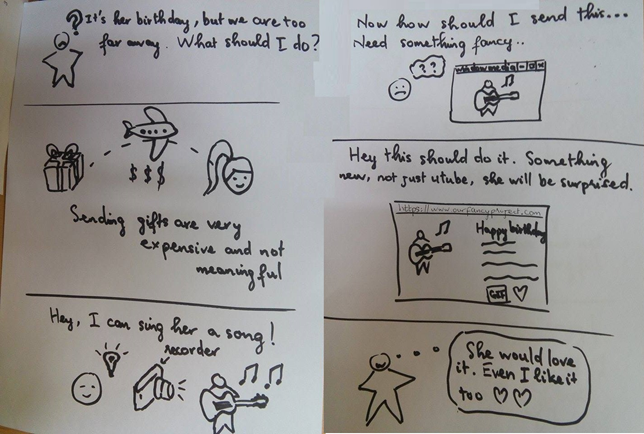 It's her birthday, but we are too
far away. What should I do?
$ $ $
Sending gifts are very
expensive and not
meaningful
Hey, I can sing her a song!
recorder
Now how should I send this...
Need something fancy..
? ?
Hey this should do it. Something
new, not just utube, she will be surprised.
https://www.ourfancyproject.com
Happy birthday
She would love
it. Even I like it
too